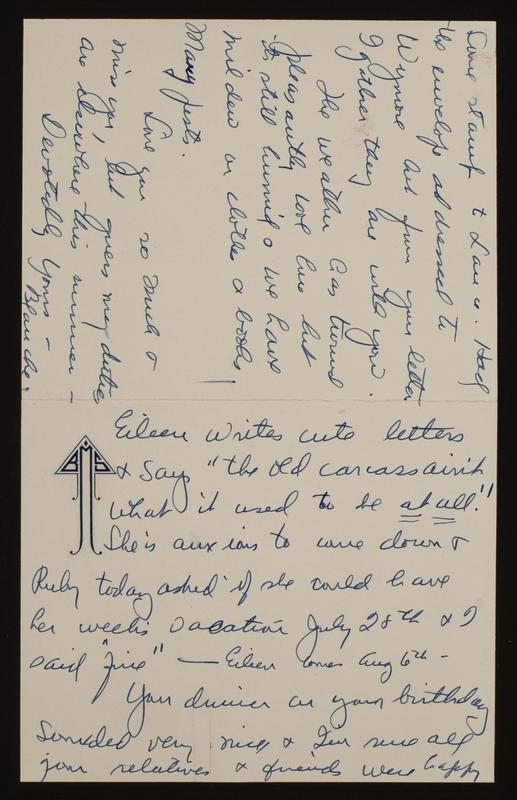 BMS
Eileen writes cute letters
& says "the old carcass ain't
what it used to be at all."
She's anxious to come down &
Ruby today asked if she could have
her weeks vacation July 28th & I
said "fine" — Eileen comes Aug 6th -
Your dinner on your birthday
sounded very nice & I'm sure all
your relatives & friends were happy
stamp to Laura. Had
the envelope addressed to
Wymore but from your letter
I gather they are with you.
The weather has turned
pleasantly cool here but
its still humid & we have
mildew on clothes & books!
Many pests.
Love you so much &
miss you, but guess my duties
are elsewhere this summer -
Devotedly yours -
Blanche.